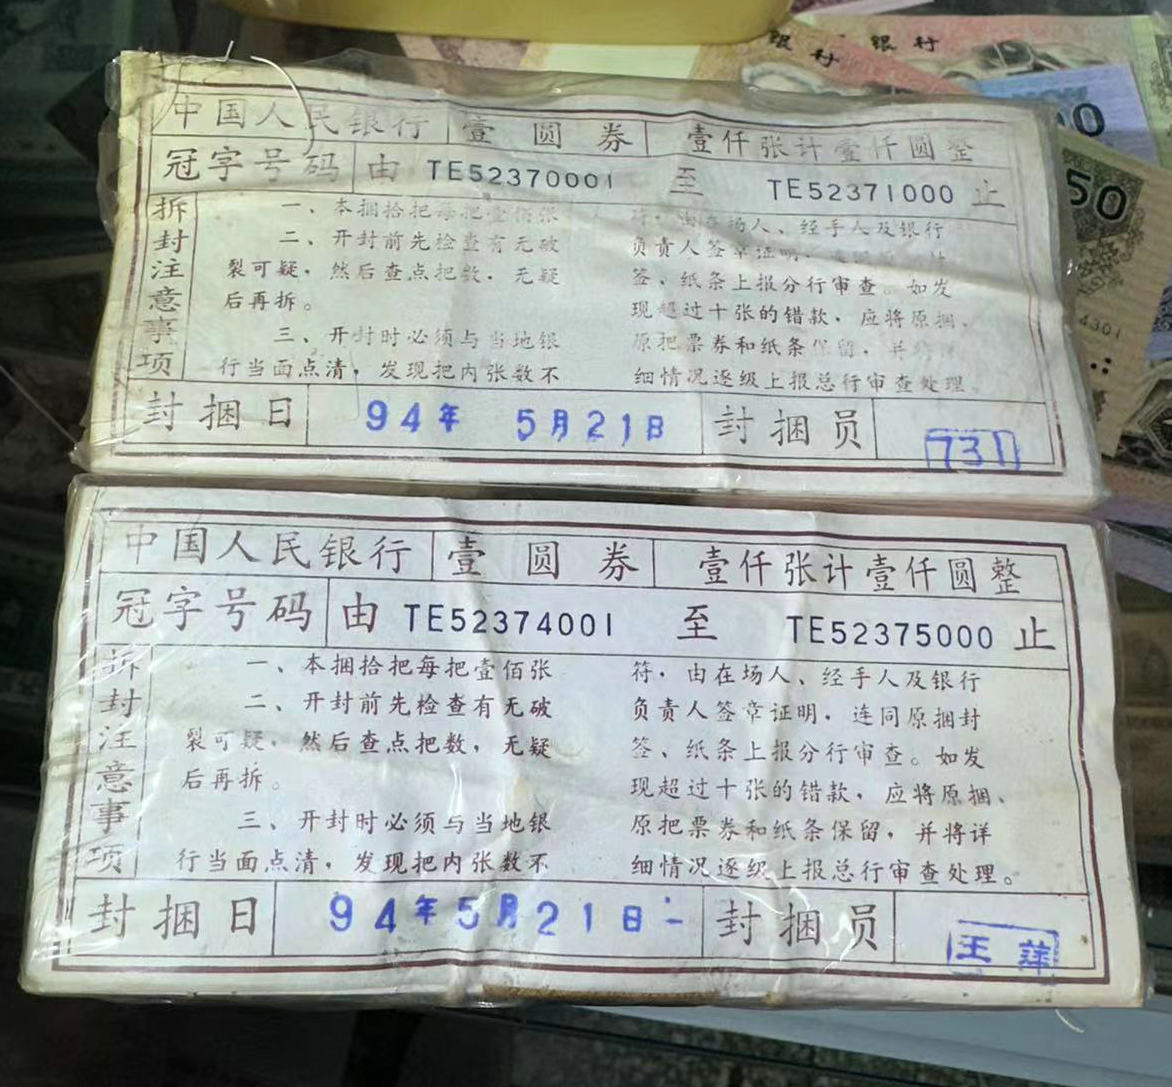 银行
银行
0
50
4301
中国人民银行 壹圆券 壹仟张计壹仟圆整
冠字号码 由 TE52370001 至 TE52371000 止
拆封注意事项
一、本捆拾把每把壹佰张
二、开封前先检查有无破
裂可疑，然后查点把数，无疑
后再拆。
三、开封时必须与当地银
行当面点清，发现把内张数不
符，由在场人、经手人及银行
负责人签章证明，
签、纸条上报分行审查。如发
现超过十张的错款，应将原捆、
原把票券和纸条保留，并将详
细情况逐级上报总行审查处理。
封捆日 94年 5月21日 封捆员 731
中国人民银行 壹圆券 壹仟张计壹仟圆整
冠字号码 由 TE52374001 至 TE52375000 止
拆封注意事项
一、本捆拾把每把壹佰张
二、开封前先检查有无破
裂可疑，然后查点把数，无疑
后再拆。
三、开封时必须与当地银
行当面点清，发现把内张数不
符，由在场人、经手人及银行
负责人签章证明，连同原捆封
签、纸条上报分行审查。如发
现超过十张的错款，应将原捆、
原把票券和纸条保留，并将详
细情况逐级上报总行审查处理。
封捆日 94年5月21日 封捆员 王萍